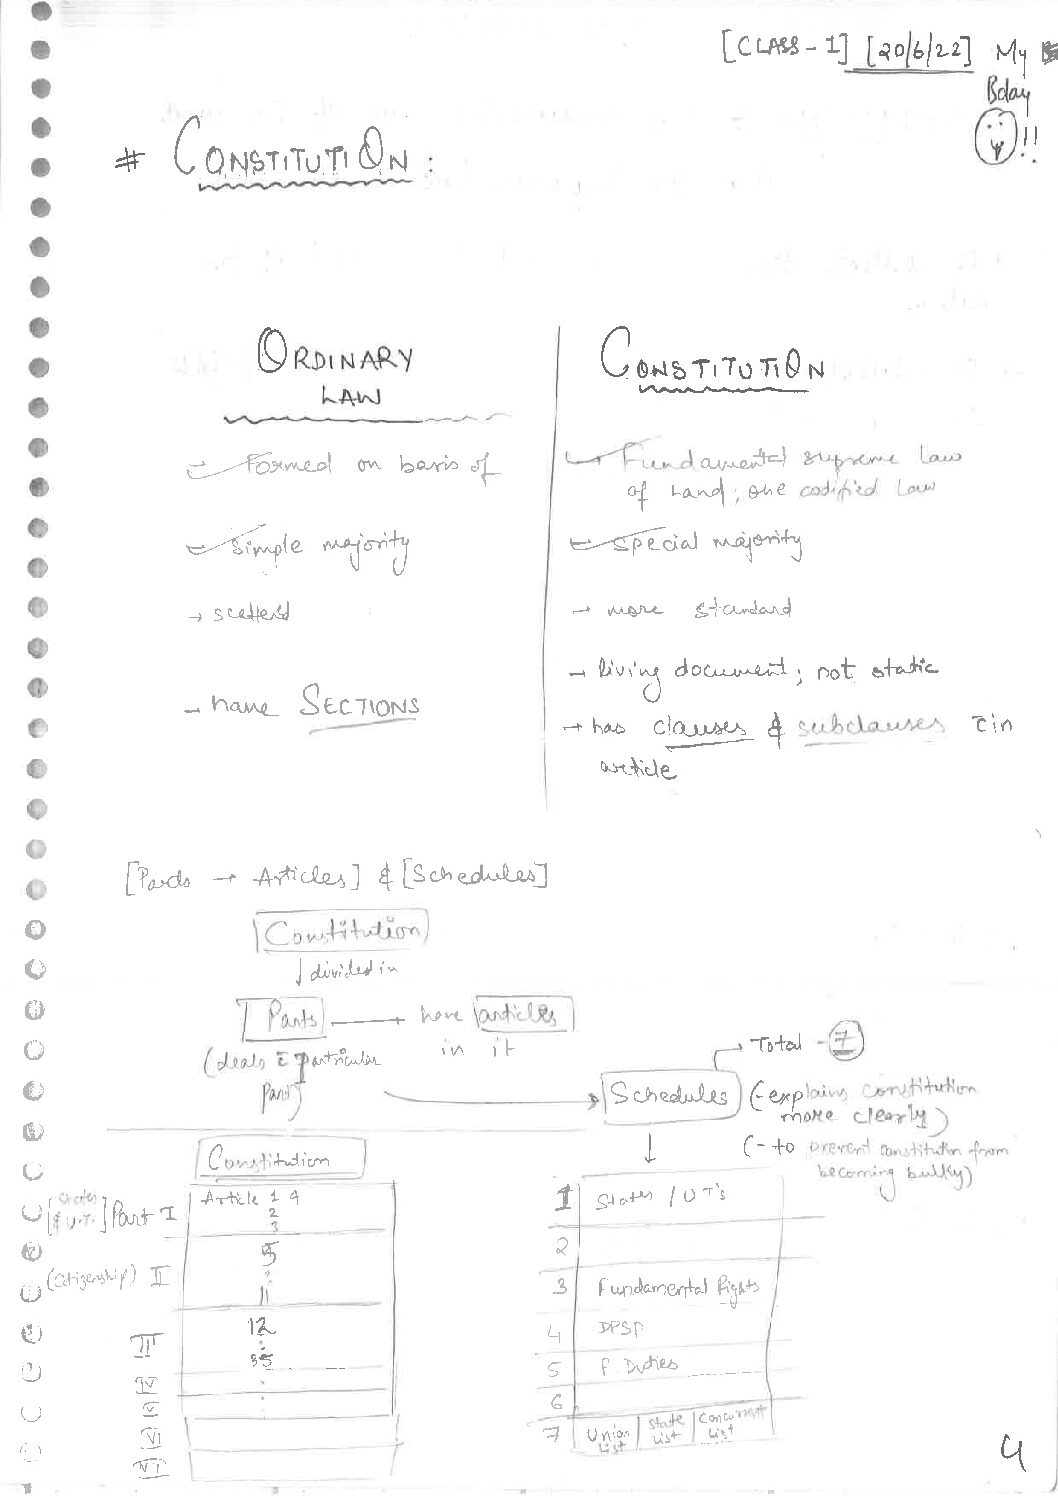 [CLASS - 1] [20/6/22] My
Bday
!!
# CONSTITUTION :
ORDINARY
LAW
Formed on basis of
simple majority
→ scatterd
→ have SECTIONS
CONSTITUTION
Fundamental supreme law
of Land; one codified Law
special majority
→ more standard
→ living document; not static
→ has clauses & subclauses c̄in
article
[Parts → Articles] & [Schedules]
Constitution
↓ divided in
Parts → have articles
in it
(deals c̄ particular
Part)
Schedules
→ Total - 7
(- explains constitution
more clearly)
(- to prevent constitution from
becoming bulky)
Constitution
[States
& U.T.] Part I
Article 1 4
2
3
(citizenship) II
5
:
11
III
12
:
35
IV
V
VI
VII
1 States / UT's
2
3 Fundamental Rights
4 DPSP
5 F Duties
6
7 Union List State List Concurrent List
4